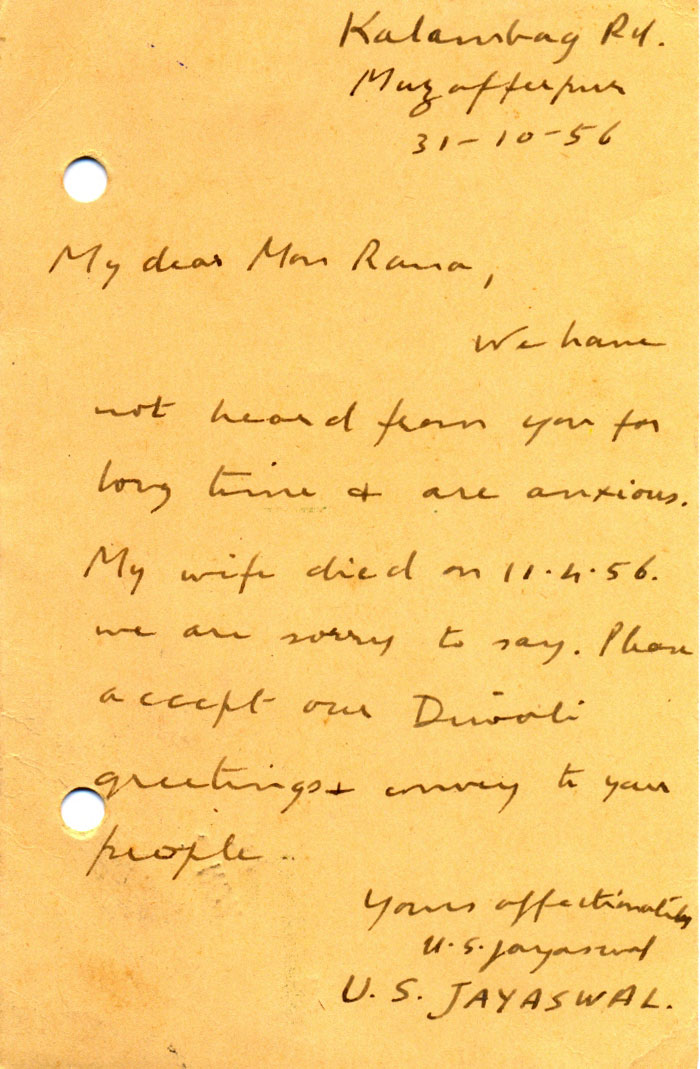 Kalambag Rd.
Muzafferpur
31-10-56
My dear Man Rana,
We have
not heard from you for
long time & are anxious.
My wife died on 11.4.56.
we are sorry to say. Please
accept our Diwali
greetings & convey to your
people.
Yours affectionately
U.S. Jayaswal
U. S. JAYASWAL.